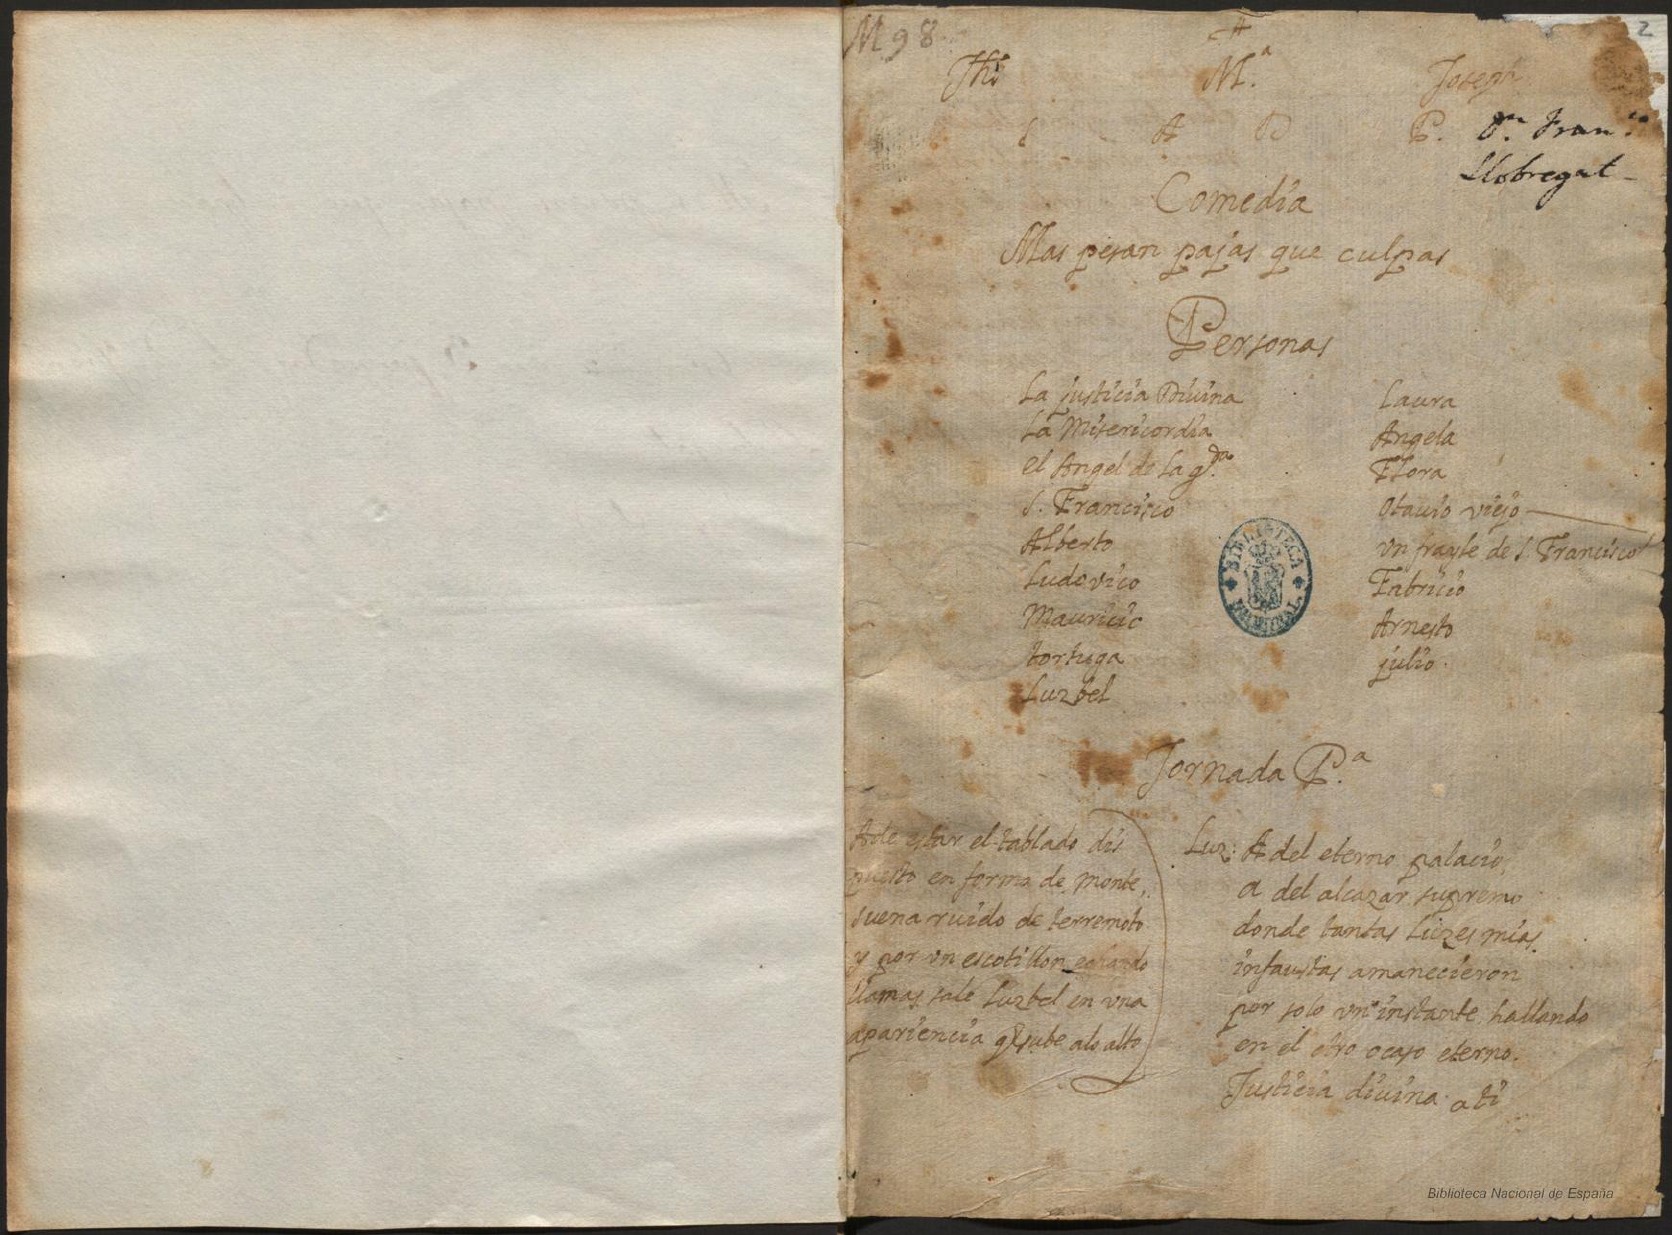 M 98
2
Jhs Mª Joseph
S A P. Dn. Franco
Llobregat
Comedia
Mas pesan pajas que culpas
Personas
La justicia Divina
La Misericordia
el Angel de la gda.
S. Francisco
Alberto
Ludovico
Mauricio
tortuga
Luzbel
Laura
Angela
Flora
Otauio viejo
Vn frayle de S. Francisco
Fabricio
Arnesto
julio.
BIBLIOTECA NACIONAL
Jornada P.ª
A de estar el tablado dis
puesto en forma de monte,
suena ruido de terremoto
y por vn escotillon echando
llamas sale Luzbel en vna
apariencia q sube a lo alto
Luz: A del eterno palacio,
a del alcazar supremo
donde tantas luzes mias
infaustas amanecieron
por solo vn instante hallando
en el otro ocaso eterno.
Justicia diuina a ti
Biblioteca Nacional de España